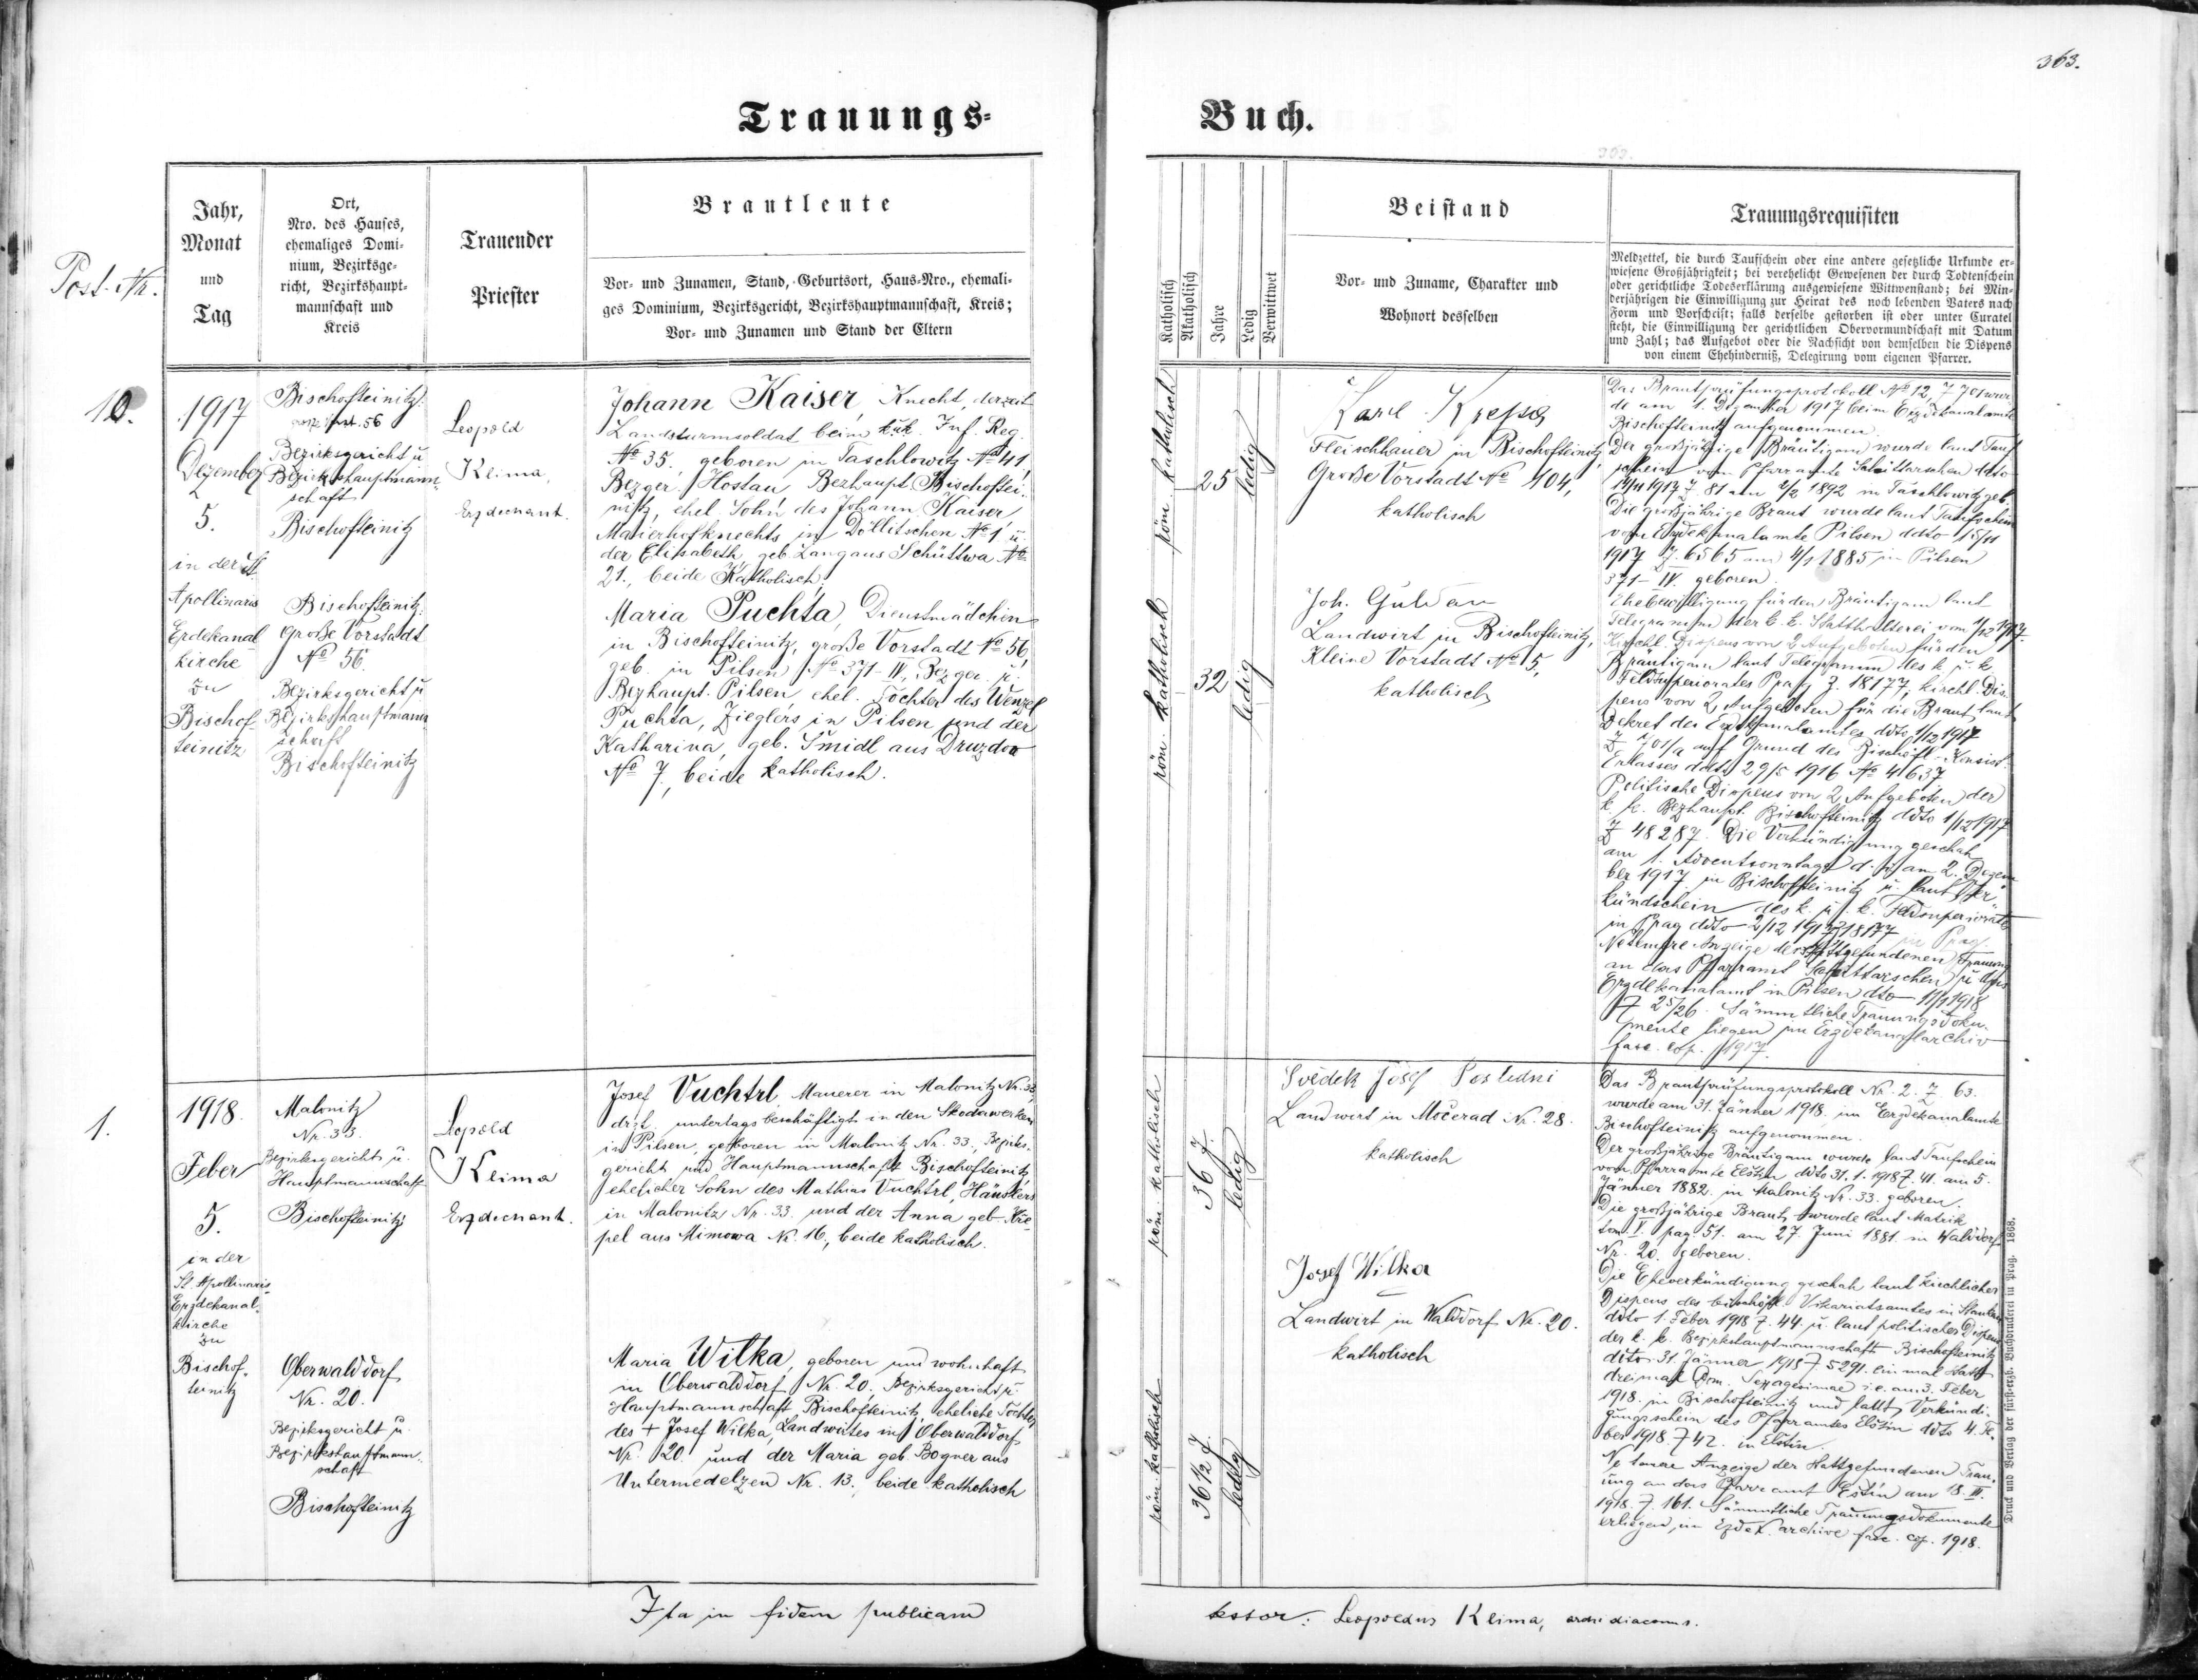 363.
Trauungs-
Buch.
Post. Nr.
Jahr,
Monat
und
Tag
Ort,
Nro. des Hauses,
ehemaliges Domi-
nium, Bezirksge-
richt, Bezirkshaupt-
mannschaft und
Kreis
Trauender
Priester
Brautleute
Vor- und Zunamen, Stand, Geburtsort, Haus-Nro., ehemali-
ges Dominium, Bezirksgericht, Bezirkshauptmannschaft, Kreis;
Vor- und Zunamen und Stand der Eltern
Katholisch
Akatholisch
Jahre
Ledig
Verwittwet
Beistand
Vor- und Zuname, Charakter und
Wohnort desselben
Trauungsrequisiten
Meldzettel, die durch Taufschein oder eine andere gesetzliche Urkunde er-
wiesene Großjährigkeit; bei verehelicht Gewesenen der durch Todtenschein
oder gerichtliche Todeserklärung ausgewiesene Wittwenstand; bei Min-
derjährigen die Einwilligung zur Heirat des noch lebenden Vaters nach
Form und Vorschrift; falls derselbe gestorben ist oder unter Curatel
steht, die Einwilligung der gerichtlichen Obervormundschaft mit Datum
und Zahl; das Aufgebot oder die Nachsicht von demselben die Dispens
von einem Ehehinderniß, Delegirung vom eigenen Pfarrer.
10.
1917
Dezember
5.
in der St.
Apollinaris
Erzdekanal
kirche
zu
Bischof-
teinitz
Bischofteinitz
56
Bezirksgericht u
Bezirkshauptmann-
schaft
Bischofteinitz
Bischofteinitz
Große Vorstadt
No 56.
Bezirksgericht u
Bezirkshauptmann
schaft
Bischofteinitz
Leopold
Klima,
Erzdechant.
Johann Kaiser, Knecht, derzeit
Landsturmsoldat beim k.u.k. Inf. Reg.
No 35., geboren in Taschlowitz No 41,
Bezger. Hostau Bezhaupt. Bischoftei-
nitz, ehel. Sohn des Johann Kaiser
Maierhofknechts in Döllitschen No 1 u.
der Elisabeth, geb. Lang aus Schüttwa No
21., beide Katholisch.
Maria Puchta, Dienstmädchen
in Bischofteinitz, große Vorstadt No 56,
geb. in Pilsen No 371-IV, Bezger. u.
Bezhaupt. Pilsen ehel. Tochter des Wenzel
Puchta, Zieglers in Pilsen und der
Katharina, geb. Šmidl aus Druzdow
No 7, beide katholisch.
röm. katholisch
25
ledig
röm. katholisch
32
ledig
Karl
Fleischhauer in Bischofteinitz
Große Vorstadt No 104,
katholisch
Joh.
Landwirt in Bischofteinitz,
Kleine Vorstadt No 5,
katholisch
Das Brautprüfungsprotokoll No 12, Z 701 wur
de am 1. Dezember 1917 beim Erzdekanalamte
Bischofteinitz aufgenommen.
Der großjährige Bräutigam wurde laut Tauf
schein vom Pfarramte Schüttarschen ddto
1917 Z 81 am 1892 in Taschlowitz geb.
Die großjährige Braut wurde laut Taufschein
vom Erzdekanalamte Pilsen ddto 15/11
1917 Z. 6565 am 4/1 1885 in Pilsen
371-IV. geboren.
Ehebewilligung für den Bräutigam laut
Telegramm der k.k. Statthalterei vom 1/12 1917.
Kirchl. Dispens von 2 Aufgeboten für den
Bräutigam laut Telegramm des k. u. k.
Feldsuperiorates Prag Z. 18177, kirchl. Dis-
pens von 2 Aufgeboten für die Braut laut
Dekret des Erzdekanalamtes ddto 1/12 1917
Z 701/a auf Grund des Bischöfl. Konsist.
Erlasses ddto 29/5 1916 No 4637
Politische Dispens von 2 Aufgeboten der
k. k. Bezhaupt. Bischofteinitz ddto 1/12 1917
Z 48287. Die Verkündigung geschah
am 1. Adventsonntage d. i. am 2. Dezem
ber 1917 in Bischofteinitz u. laut Ver-
kündschein des k. u. k. Feldsuperiorats
in Prag ddto 2/12 1917 Z 18177
Anzeige der stattgefundenen Trauung
an das Pfarramt Schüttarschen u das
Erzdekanalamt in Pilsen dto 11/1 1918
Z 25/26. Sämmtliche Trauungsdoku-
mente liegen im Erzdekanalarchiv
fasc. cop. 1917.
1.
1918.
Feber
5.
in der
St. Apollinaris
Erzdekanal-
kirche
zu
Bischof-
teinitz
Malonitz
Nr. 33.
Bezirksgericht u.
Hauptmannschaft
Bischofteinitz
Oberwalddorf
Nr. 20.
Bezirksgericht u.
Bezirkshauptmann-
schaft
Bischofteinitz
Leopold
Klima
Erzdechant.
Josef Vuchtrl, Maurer in Malonitz Nr. 33,
drzt. untertags beschäftigt in den Skodawerken
in Pilsen, geboren in Malonitz Nr. 33, Bezirks-
gericht und Hauptmannschaft Bischofteinitz,
ehelicher Sohn des Mathias Vuchtrl, Häuslers
in Malonitz Nr. 33. und der Anna geb. Krie-
pel aus Mimowa Nr. 16, beide katholisch.
Maria Wilka, geboren und wohnhaft
in Oberwalddorf Nr. 20, Bezirksgericht u.
Hauptmannschaft Bischofteinitz, eheliche Tochter
des + Josef Wilka, Landwirtes in Oberwalddorf
Nr. 20. und der Maria geb. Bogner aus
Untermedelzen Nr. 13., beide katholisch
röm. katholisch
36 J.
ledig
röm. katholisch
36 1/2 J.
ledig
Svědek Josef Poslední
Landwirt in Močerad Nr. 28.
katholisch
Josef Wilka
Landwirt in Walddorf Nr. 20.
katholisch
Das Brautprüfungsprotokoll Nr. 2. Z 63.
wurde am 31. Jänner 1918. im Erzdekanalamte
Bischofteinitz aufgenommen.
Der großjährige Bräutigam wurde laut Taufschein
vom Pfarramte Elstin ddto 31. 1. 1918 Z. 41. am 5.
Jänner 1882. in Malonitz Nr. 33. geboren.
Die großjährige Braut wurde laut Matrik
tom. V. pag 51. am 27. Juni 1881. in Walddorf
Nr. 20. geboren.
Die Eheverkündigung geschah laut kirchlicher
Dispens des bischöfl. Vikariatsamtes in
ddto 1. Feber 1918 Z. 44. u. laut politischer Dispens
der k. k. Bezirkshauptmannschaft Bischofteinitz
ddto. 31. Jänner 1918 Z 5291. einmal statt
dreimal Dom. Sexagesimae i.e. am 3. Feber
1918. in Bischofteinitz und lautt Verkündi-
gungsschein des Pfarramtes Elstin ddto 4. Fe-
ber 1918. Z 42. in Elstin.
Anzeige der stattgefundenen Trau-
ung an das Pfarramt Elstin am 18. III.
1918. Z. 161. Sämmtliche Trauungsdokumente
erliegen im Erzdek. archive fasc. cop. 1918.
Druck und Verlag der fürst-erzb. Buchdruckerei in Prag. 1868.
Ita in fidem publicam
testor: Leopoldus Klima, archidiaconus.